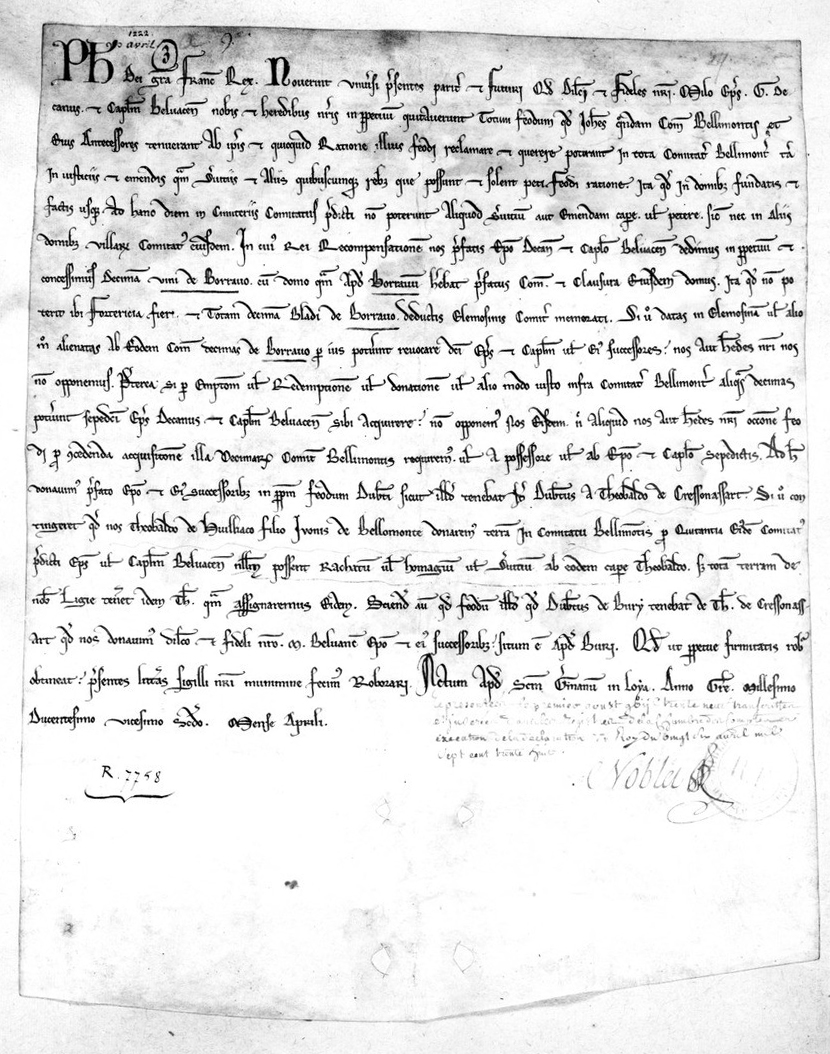 1222
avril
3
Ph Dei gra Franc Rex. Noverint univsi psentes parit et futuri Qd dilci et Fideles nri. Milo Eps. G. De
canus. et Caplm Belvacen nobis et heredibus nris in ppetuū quitaverunt Totum feodum qd Johes quidam Com Bellimontis et
Eius Antecessores tenuerant Ab ipis et quicquid Ratione illius feodi reclamare et querere poterant In tota Comitat Bellimont tā
In iusticiis et emendis qm Svitiis et Aliis quibuscunq reb; que possunt et solent peti Feodi ratione. Ita qd In domib; fundatis et
factis usq; Ad hanc diem in Cimiteriis Comitatus pdicti nō poterunt Aliquod Svitium aut Emendam cape. ul petere. sic nec in Aliis
domib; villarū Comitat eiusdem. In cui Rei Recompensationē nos pfatis Epo Decan et Caplo Belvacen dedimus in ppetuū et
concessimus Decimā vini de Borrano. cū domo qm Apd Borranū hebat pfatus Com. et Clausura Eiusdem domus. Ita qd nō po
terit ibi Fortericia fieri. et Totam decimā Bladi de Borrano deductis Elemosinis Comit memorati. Si u datas in Elemosinā ul alio
m alienatas Ab Eodem Com decimas de Borrano p ius potuint revocare dci Eps et Caplm ul Ei successores: nos Aut hedes nri nos
nō opponemus. Pterea si p Emptom ul Redemptionē ul donationē ul alio modo iusto infra Comitat Bellimont aliqs decimas
potuint sepedci Eps Decanus et Caplm Belvacen sibi Acquirere: nō opponem Nos Eisdem. n Aliquid nos Aut hedes nri occone feo
di p ɔcedenda acquisitione illa Decimarꝝ Comit Bellimontis requirem. ul A possessore ul ab Epo et Caplo Sepedictis. Ad h
donavim pfato Epo et Ei Successorib; in ppm feodum Dubti sicut illd tenebat Ipe Dubtus A Theobaldo de Cressonassart. Si u con
tingeret qd nos Theobaldo de filio Ivonis de Bellomonte donarem terrā In Comitatu Bellimōtis p Quitantia Eide Comitat
pdicti Eps ul Caplm Belvacen nllm possent Rachatū ul homagiū ul Svitiū ab eodem cape Theobaldo. s; totā terram de
nob Ligie tenet idem Th. qm assignaremus Eidem. Sciend aū qd feodū illd qd Dubtus de Bury tenebat de Th. de Cressonass
art qd nos donavim dilco et fideli nro. M. Belvacen Epo et ei successorib; situm ē Apd Buri. Qd ut ppetue firmitatis rob
obtineat: psentes littas sigilli nri munimine fecim Roborari. Actum Apd Scm Gmanū in Loya. Anno Gre. Millesimo
Ducentesimo vicesimo Scdo. Mense Aprili.
execution de la declaration du Roy du vingt six avril mil
sept cent trente
Noblet
R. 7758